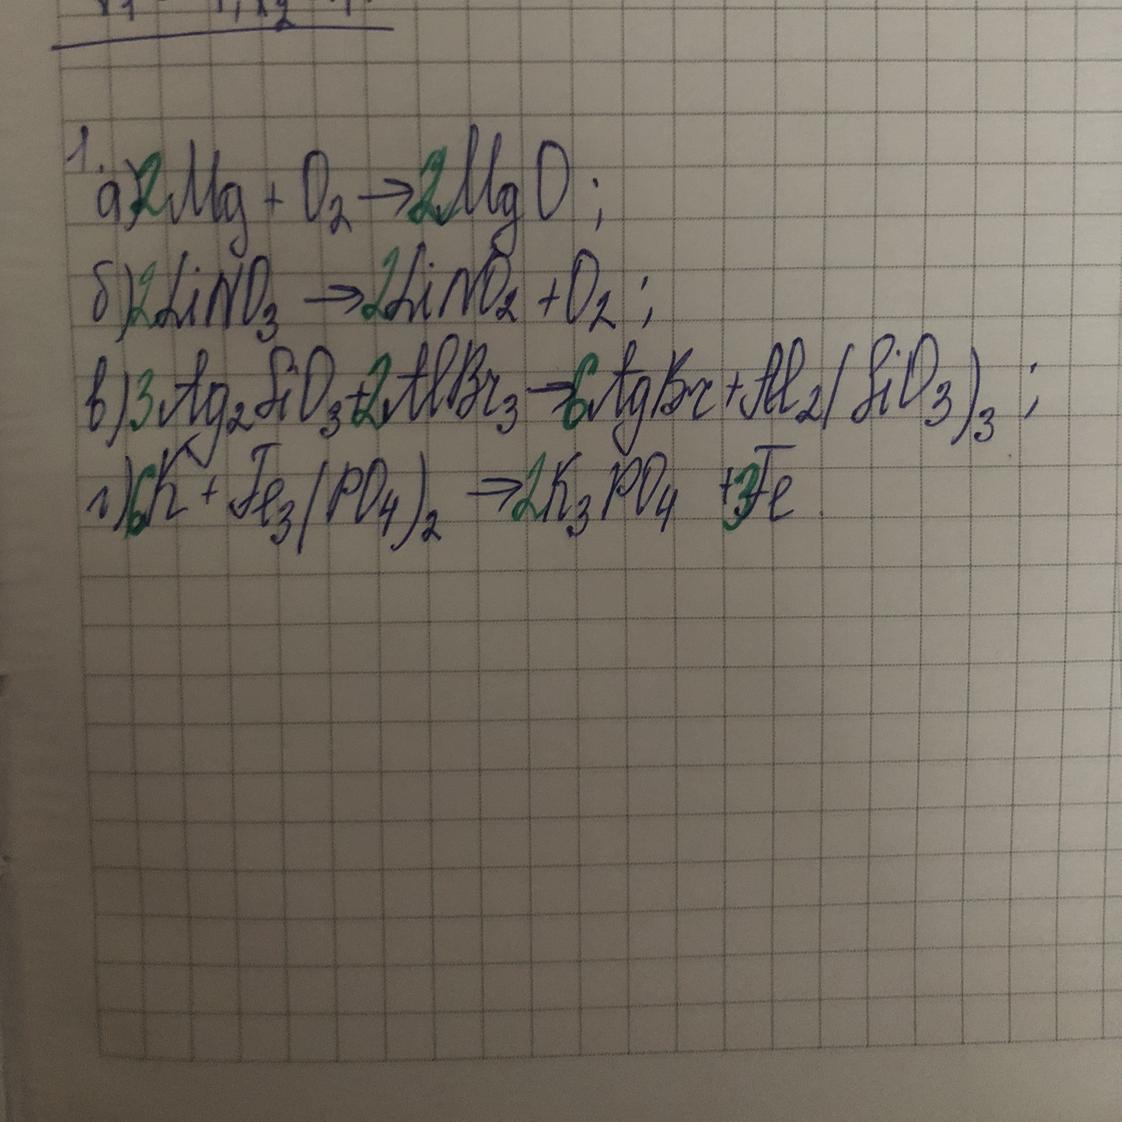 1.
а) 2Mg + O₂ → 2MgO;
б) 2LiNO₃ → 2LiNO₂ + O₂;
в) 3Ag₂SiO₃ + 2AlBr₃ → 6AgBr + Al₂(SiO₃)₃;
г) 6K + Fe₃(PO₄)₂ → 2K₃PO₄ + 3Fe